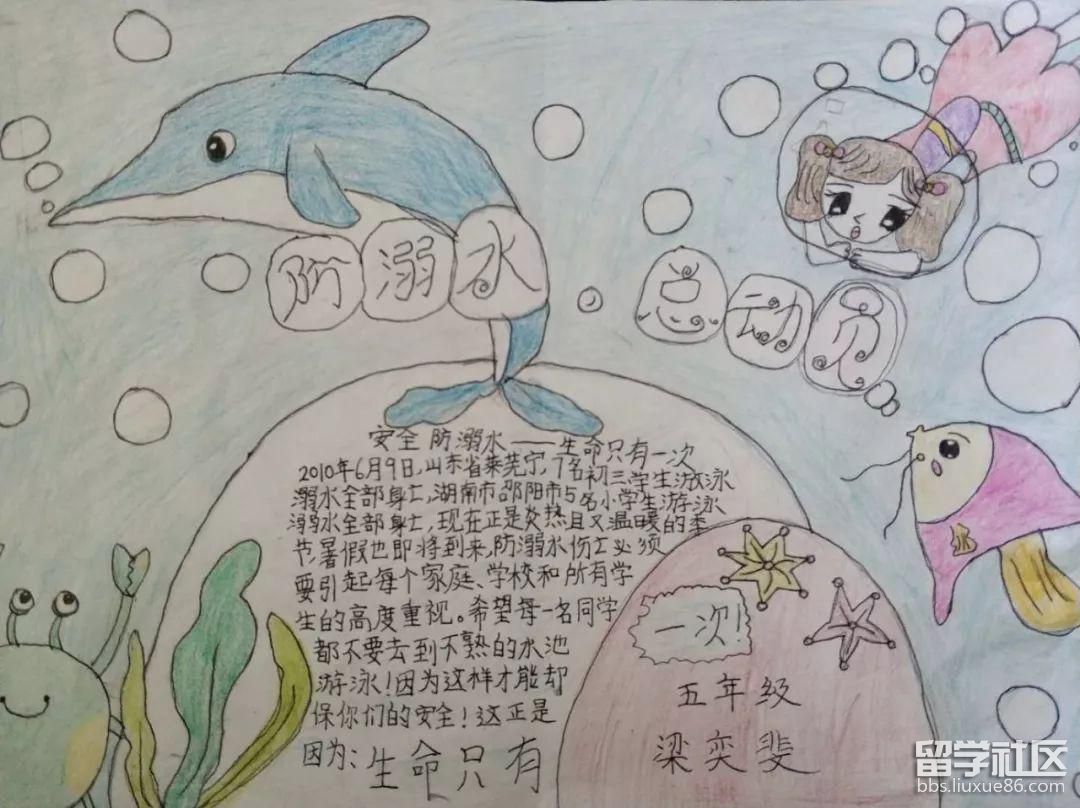 防溺水
总动员
安全 防溺水——生命只有一次
2010年6月9日,山东省莱芜宁,7名初三学生游泳
溺水全部身亡,湖南市邵阳市5名小学生游泳
溺水全部身亡,现在正是炎热且又温暖的季
节,暑假也即将到来,防溺水伤亡必须
要引起每个家庭、学校和所有学
生的高度重视。希望每一名同学
都不要去到不熟的水池
游泳!因为这样才能却
保你们的安全!这正是
因为:生命只有
一次!
五年级
梁奕斐
留学社区
bbs.liuxue86.com